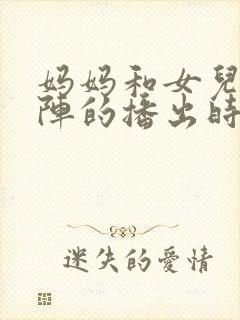 妈妈和女兒
陣的播出時
迷失的愛情